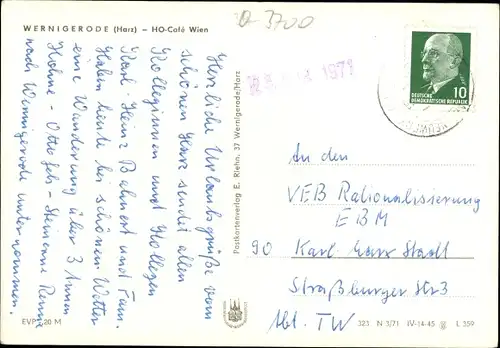 WERNIGERODE (Harz) – HO-Café Wien
D 3700
1971
10
DEUTSCHE
DEMOKRATISCHE REPUBLIK
Herzliche Urlaubsgrüße vom
schönen Harz sendet allen
Kolleginnen und Kollegen
Karl-Heinz Bahnert und Fam.
Haben heute bei schönem Wetter
eine Wanderung über
Hohne – Ottofels – Steinerne Renne
nach Wernigerode unternommen.
Postkartenverlag E. Riehn, 37 Wernigerode/Harz
An den
VEB Rationalisierung
EBM
90 Karl-Marx-Stadt
Straßburger Str 3
Abt. TW
EVP 20 M
323 N 3/71 IV-14-45 L 359